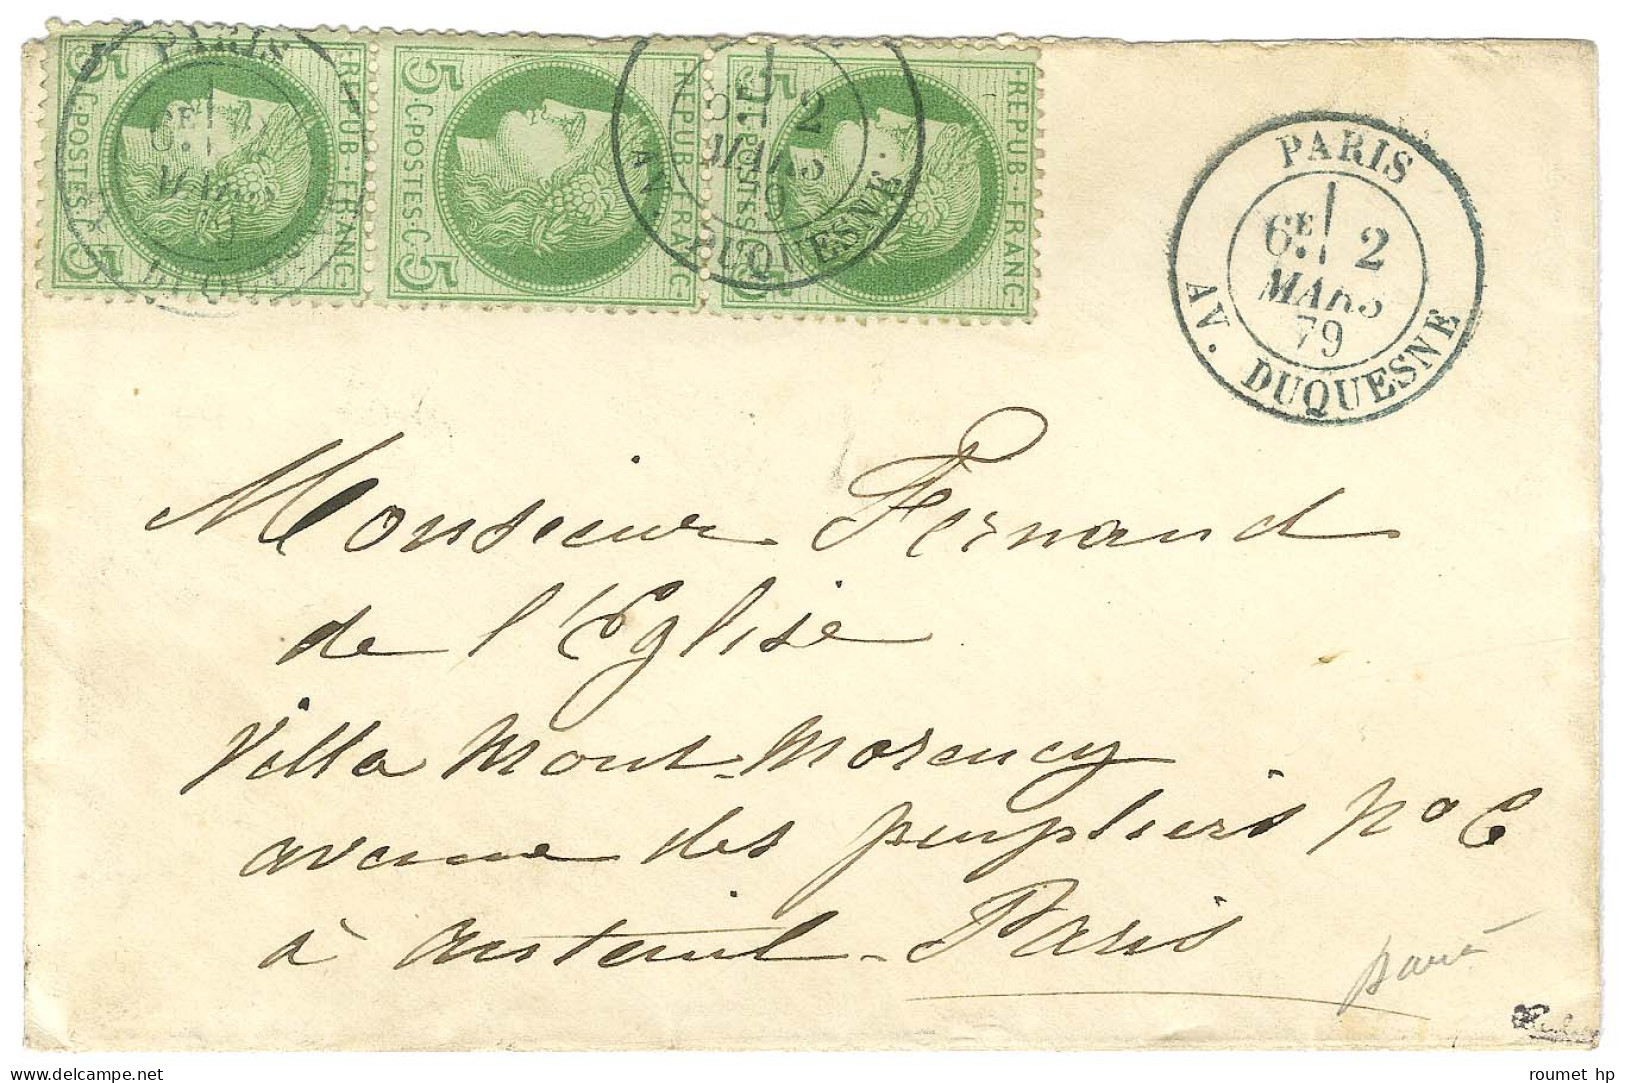 5 REPUB·FRANC· 5 C·POSTES·C
5 REPUB·FRANC· 5 C·POSTES·C
5 REPUB·FRANC· 5 POSTES
PARIS
6E
MARS
2
MARS
9
AV. DUQUESNE.
PARIS
6E 2
MARS
79
AV. DUQUESNE
Monsieur Fernand
de l'Eglise
Villa Mont-Morency
avenue des peupliers No 6
à Auteuil - Paris
roumet hp